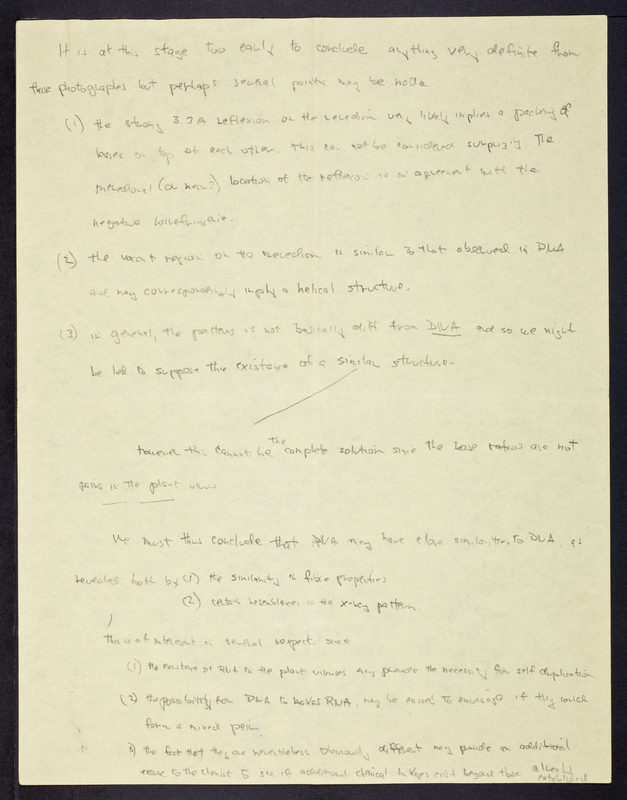 It is at this stage too early to conclude anything very definite from
these photographs but perhaps several points may be made
(1) the strong 3.3 A reflexion on the meridian very likely implies a packing of
bases on top of each other. This can not be considered surprising. The
meridional (or near?) location of the reflexion is in agreement with the
negative birefringence.
(2) the vacant region on the meridian is similar to that observed in DNA
and may correspondingly imply a helical structure.
(3) in general, the patterns is not basically diff from DNA and so we might
be led to suppose the existance of a similar structure.
However this cannot be the complete solution since the base ratios are not
pairs in the plant virus
We must thus conclude that RNA may have close similarities to DNA, as
revealed both by (1) the similarity in fibre properties
(2) certain resemblances in the X-ray pattern
This is of interest in several respects since
(1) the existence of RNA in the plant viruses may provide the necessity for self duplication
(2) the possibility for DNA to makes RNA, may be easier to envisage if they could
form a mixed pair.
3) the fact that they are nevertheless obviously different may provide an additional
to the chemist to see if additional chemical linkages exist beyond those already
established